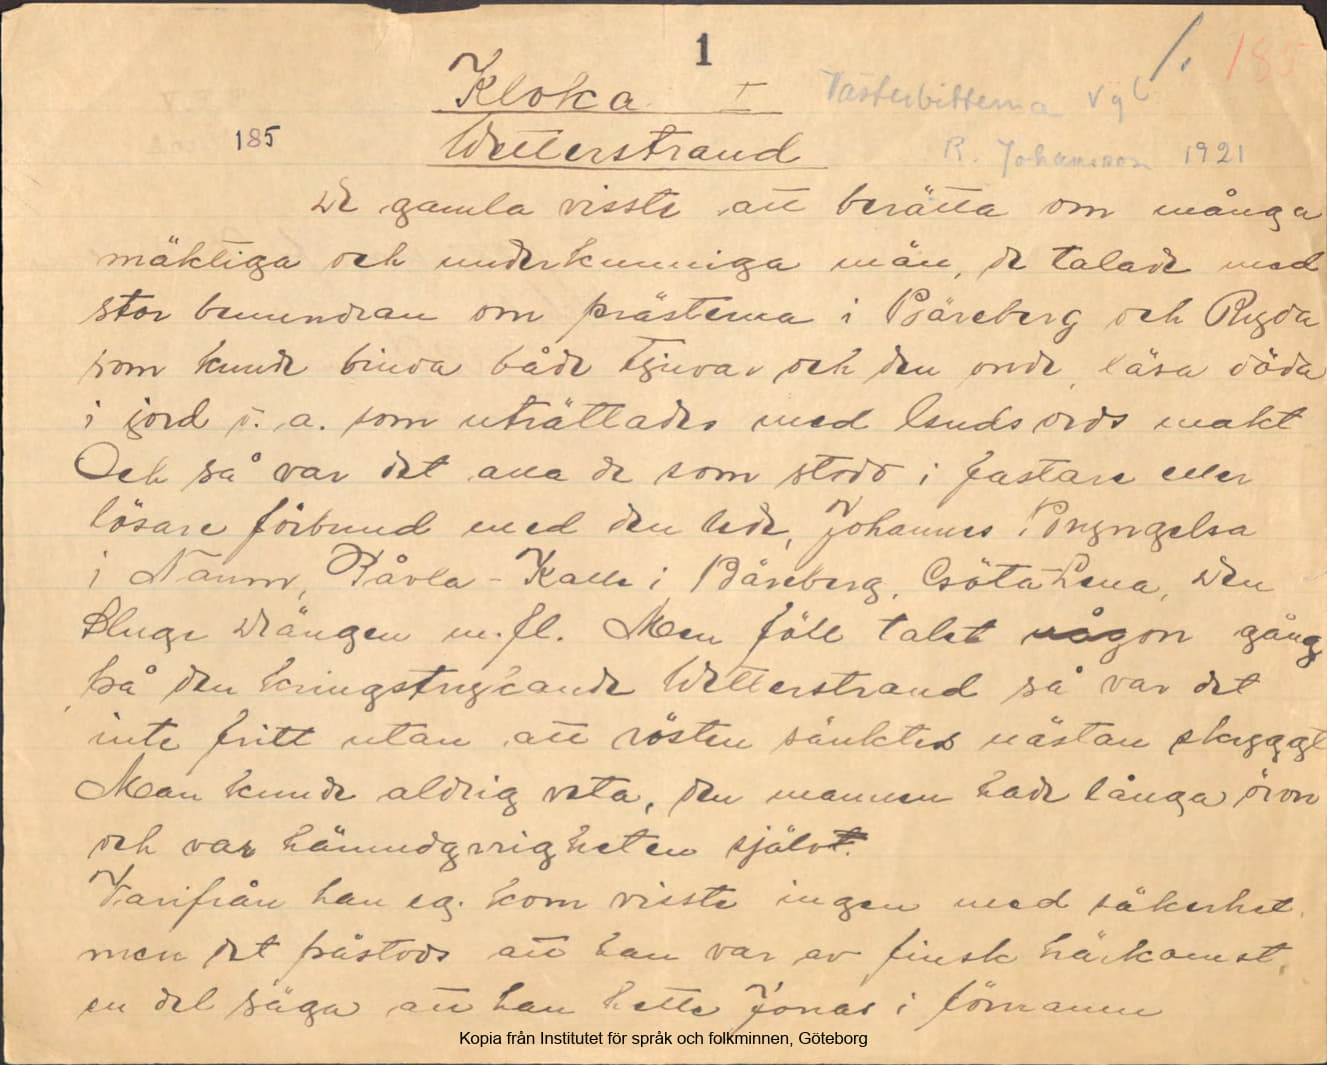 1
Kloka I
Västerbitterna Vg
1. 185
185
Wetterstrand
R. Johansson 1921
De gamla visste att berätta om många
mäktiga och underkunniga män, de talade med
stor beundran om prästerna i Bäreberg och Ryda
som kunde binda både tjuvar och den onde, läsa döda
i jord o. a. som uträttades med Guds ords makt
Och så var det alla de som stodo i fastare eller
lösare förbund med den lede, Johannes i
i Naum, Råvla-Kalle i Bäreberg, Göta Lena, Den
Kluge Drängen m. fl. Men föll talet någon gång
på den kringstrykande Wetterstrand så var det
inte fritt utan att rösten sänktes nästan skyggt
Man kunde aldrig veta, den mannen hade långa öron
och var hämndgirigheten själv.
Varifrån han eg. kom visste ingen med säkerhet,
men det påstods att han var av finsk härkomst,
en del säga att han hette Jonas i förnamn
Kopia från Institutet för språk och folkminnen, Göteborg